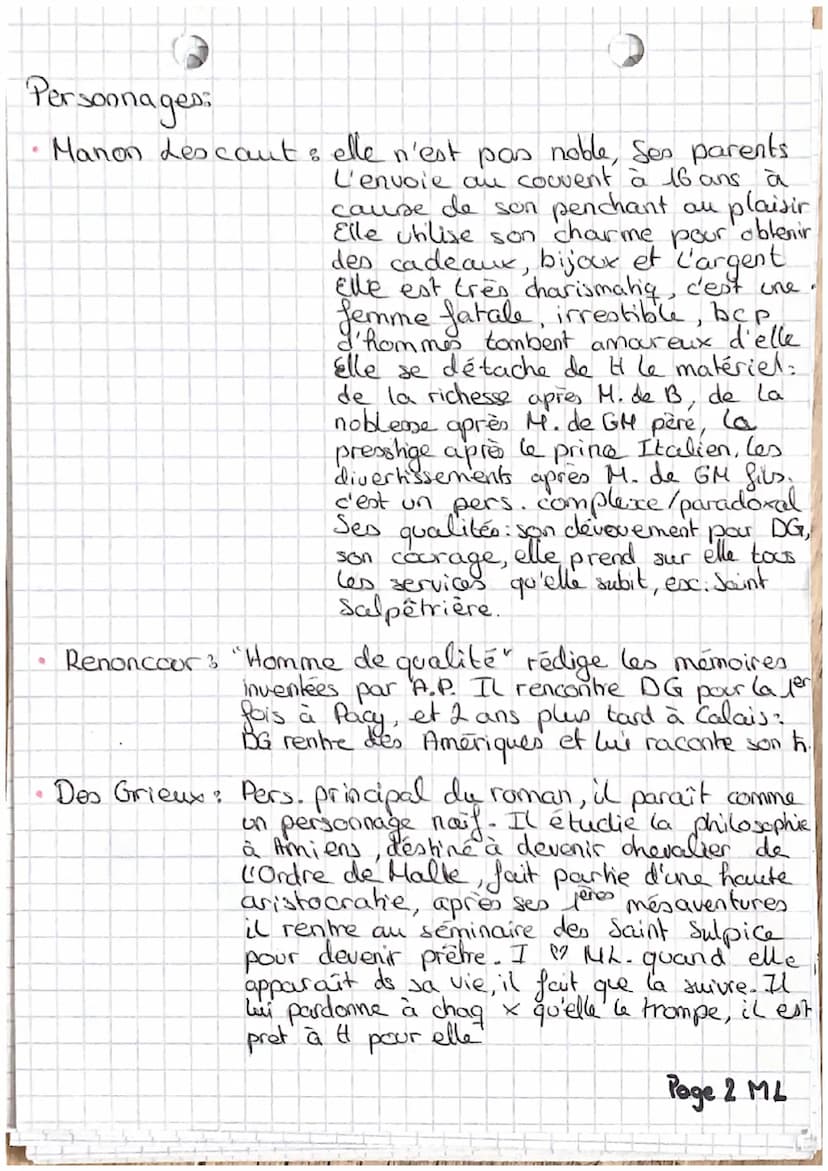 Personnages:
• Manon Lescaut : elle n'est pas noble, Ses parents
L'envoie au couvent à 16 ans à
cause de son penchant au plaisir
Elle utilise son charme pour obtenir
des cadeaux, bijoux et l'argent
Elle est très charismatiq, c'est une
femme fatale, irrestible, bcp
d'hommes tombent amoureux d'elle
Elle se détache de tt le matériel:
de la richesse après M. de B, de la
noblesse après M. de GM père, la
presstige après le prince Italien, les
divertissements après M. de GM fils.
c'est un pers. complexe/paradoxal
Ses qualités: son dévouement pour DG,
son courage, elle prend sur elle tous
les services qu'elle subit, ex: Saint
Salpêtrière.
• Renoncour : "Homme de qualité" rédige les mémoires
inventées par A.P. Il rencontre DG pour la 1er
fois à Pacy, et 2 ans plus tard à Calais:
DG rentre des Amériques et lui raconte son h.
• Des Grieux : Pers. principal du roman, il paraît comme
un personnage naïf. Il étudie la philosophie
à Amiens, déstiné à devenir chevalier de
l'Ordre de Malte, fait partie d'une haute
aristocratie, après ses 1ères mésaventures
il rentre au séminaire des Saint Sulpice
pour devenir prêtre. I ♡ ML. quand elle
apparaît ds sa vie, il fait que la suivre. Il
lui pardonne à chaq x qu'elle le trompe, il est
pret à tt pour elle
Page 2 ML